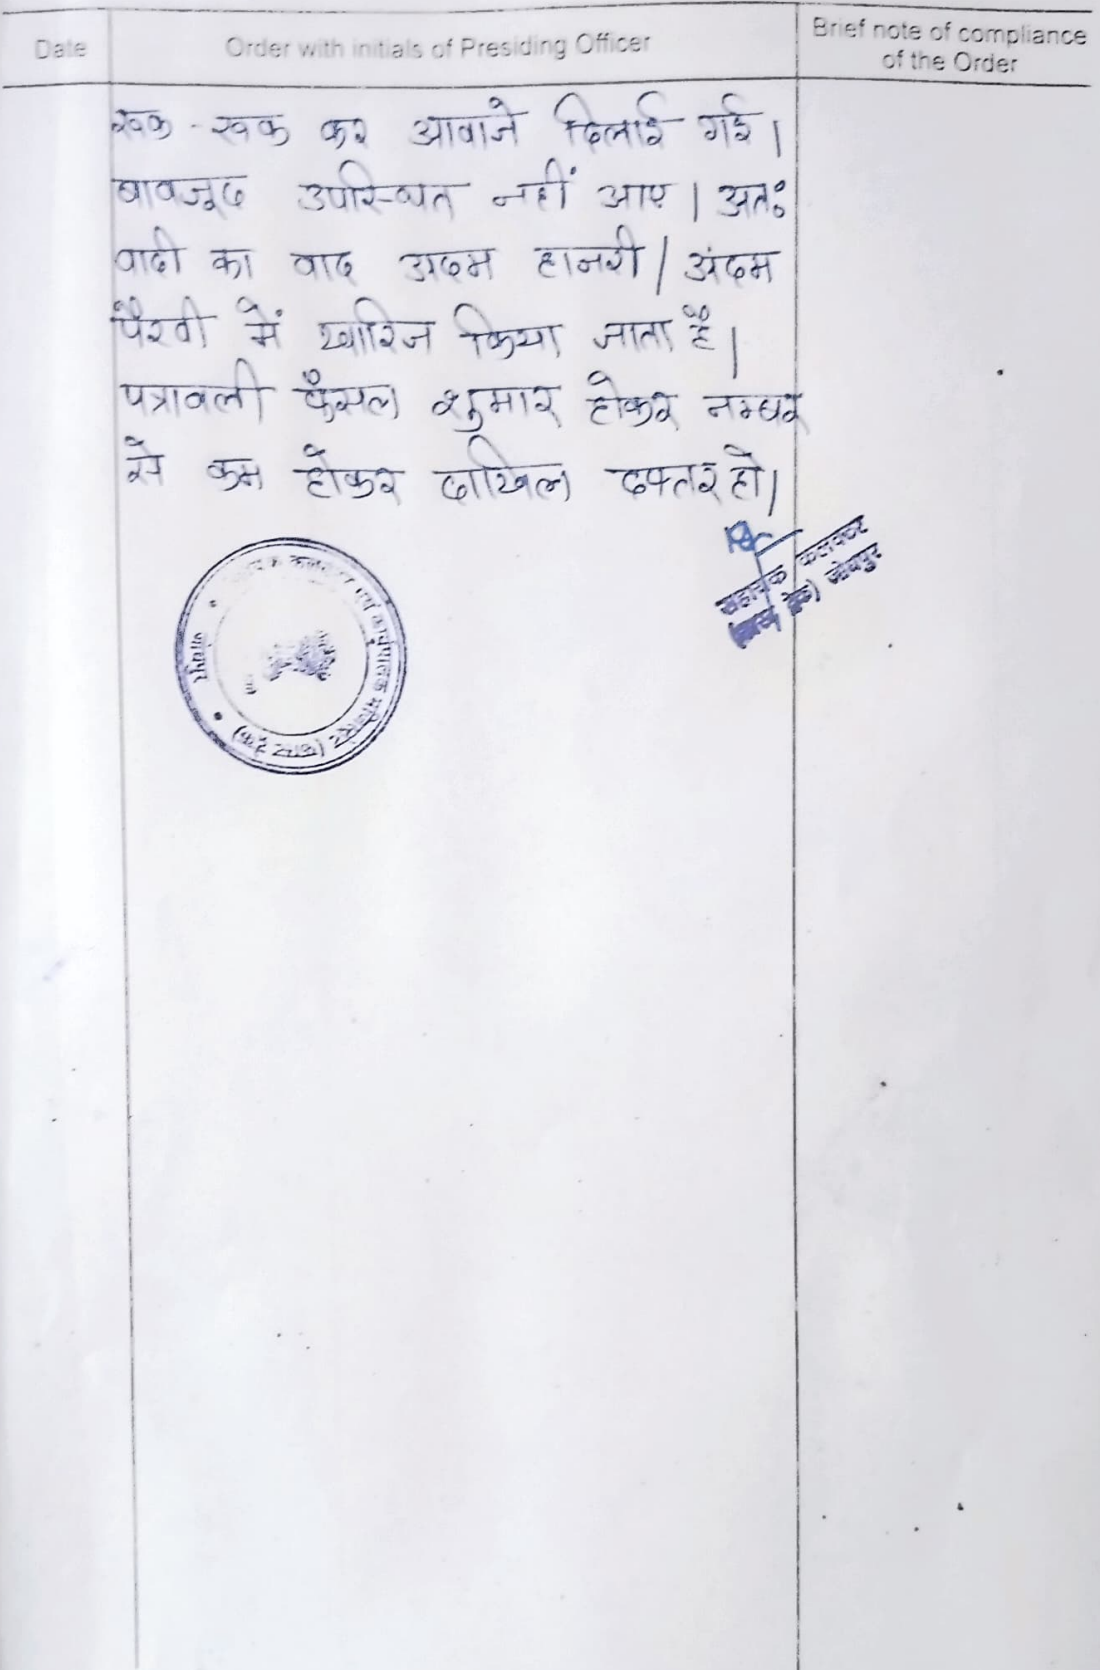 Date
Order with initials of Presiding Officer
Brief note of compliance
of the Order
रूक - रूक कर आवाजे दिलाई गई।
बावजूद उपस्थित नहीं आए। अतः
वादी का वाद अदम हाजरी / अदम
पैरवी में खारिज किया जाता है।
पत्रावली फैसल शुमार होकर नम्बर
से कम होकर दाखिल दफ्तर हो।
सहायक कलक्टर
(फास्ट ट्रेक) जोधपुर
कार्यपालक मजिस्ट्रेट (फास्ट ट्रेक)
जोधपुर